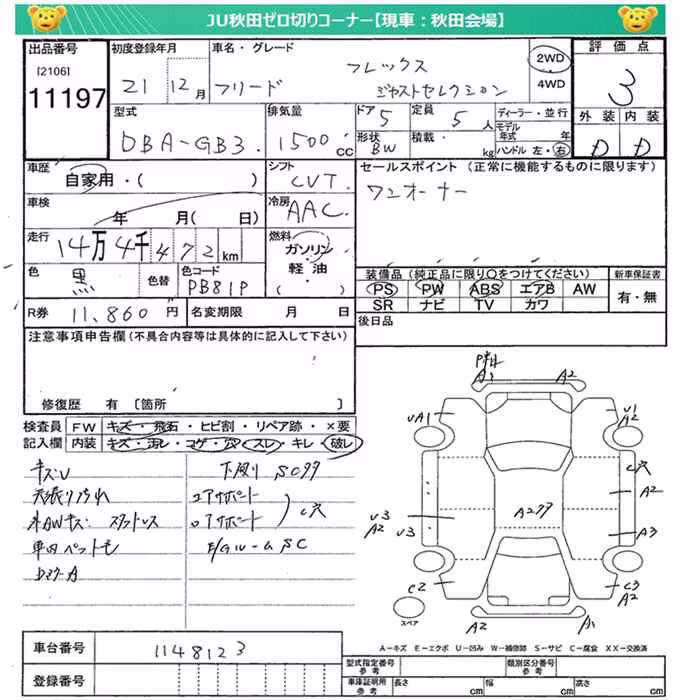 JU秋田ゼロ切りコーナー【現車：秋田会場】
出品番号
[2106]
11197
初度登録年月
21 12月
車名・グレード
フリード
フレックス
ジャストセレクション
2WD
4WD
評価点
3
外装 内装
D D
型式
DBA-GB3.
排気量
1500cc
ドア
5
定員
5人
形状
BW
積載.
kg
ディーラー・並行
モデル年式 年
ハンドル 左・右
車歴
自家用・( )
シフト
CVT.
セールスポイント (正常に機能するものに限ります)
ワンオーナー
車検
年 月( 日)
冷房
AAC.
走行
14万4千472km
燃料
ガソリン
軽油
・
色
黒
色替
色コード
PB81P
装備品 (純正品に限り○をつけてください)
新車保証書
PS PW ABS エアB AW
SR ナビ TV カワ
有・無
R券
11,860円
名変期限 月 日
後日品
注意事項申告欄(不具合内容等は具体的に記入して下さい)
修復歴 有 〔箇所 〕
検査員 FW キズ・飛石・ヒビ割・リペア跡・×要
記入欄 内装 キズ・汚レ・コゲ・穴・スレ・キレ・破レ
キズU
天張り汚れ
下廻り SCサ
エアサポート
ロアサポート
C穴
スタットレス
車内ペット毛
E/Gルーム SC
A1 A2
UA1
U1
A2
C穴
A2
U3
A2
U3
A2
A3
C2
C3
A2
A2 A1
スペア
A－キズ E－エクボ U－凹み W－補修跡 S－サビ C－腐食 XX－交換済
車台番号
1148123
登録番号
型式指定番号
参考
類別区分番号
参考
車庫証明用
参考
長さ cm 幅 cm 高さ cm